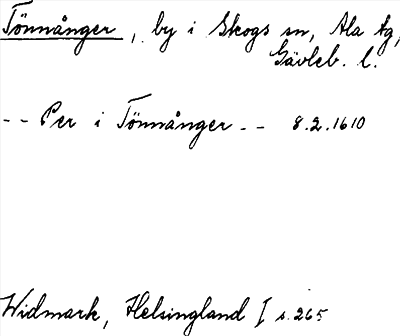 Tönnånger, by i Skogs sn, Ala tg,
Gävleb. l.
-- Per i Tönnånger -- 8.2.1610
Widmark, Helsingland I s. 265